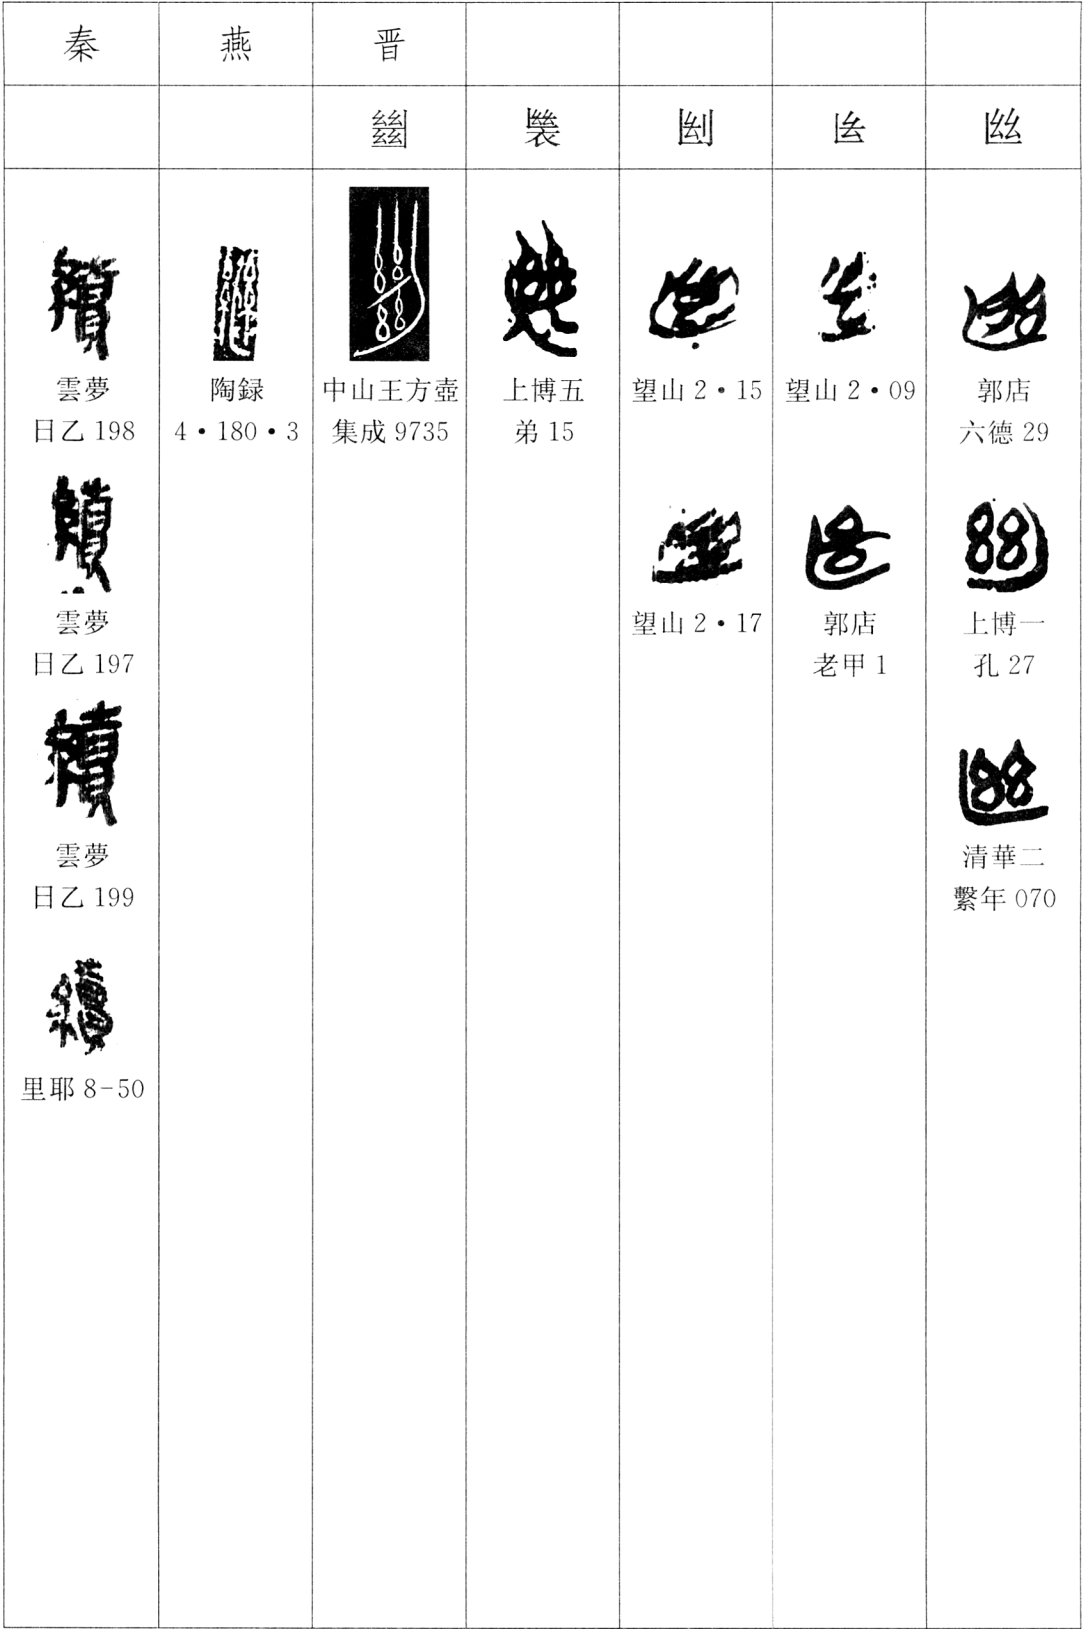 秦 燕 晋
雲夢
日乙 198
陶録
4・180・3
中山王方壺
集成 9735
上博五
弟 15
望山 2・15
望山 2・09
郭店
六德 29
雲夢
日乙 197
望山 2・17
郭店
老甲 1
上博一
孔 27
雲夢
日乙 199
清華二
繫年 070
里耶 8-50